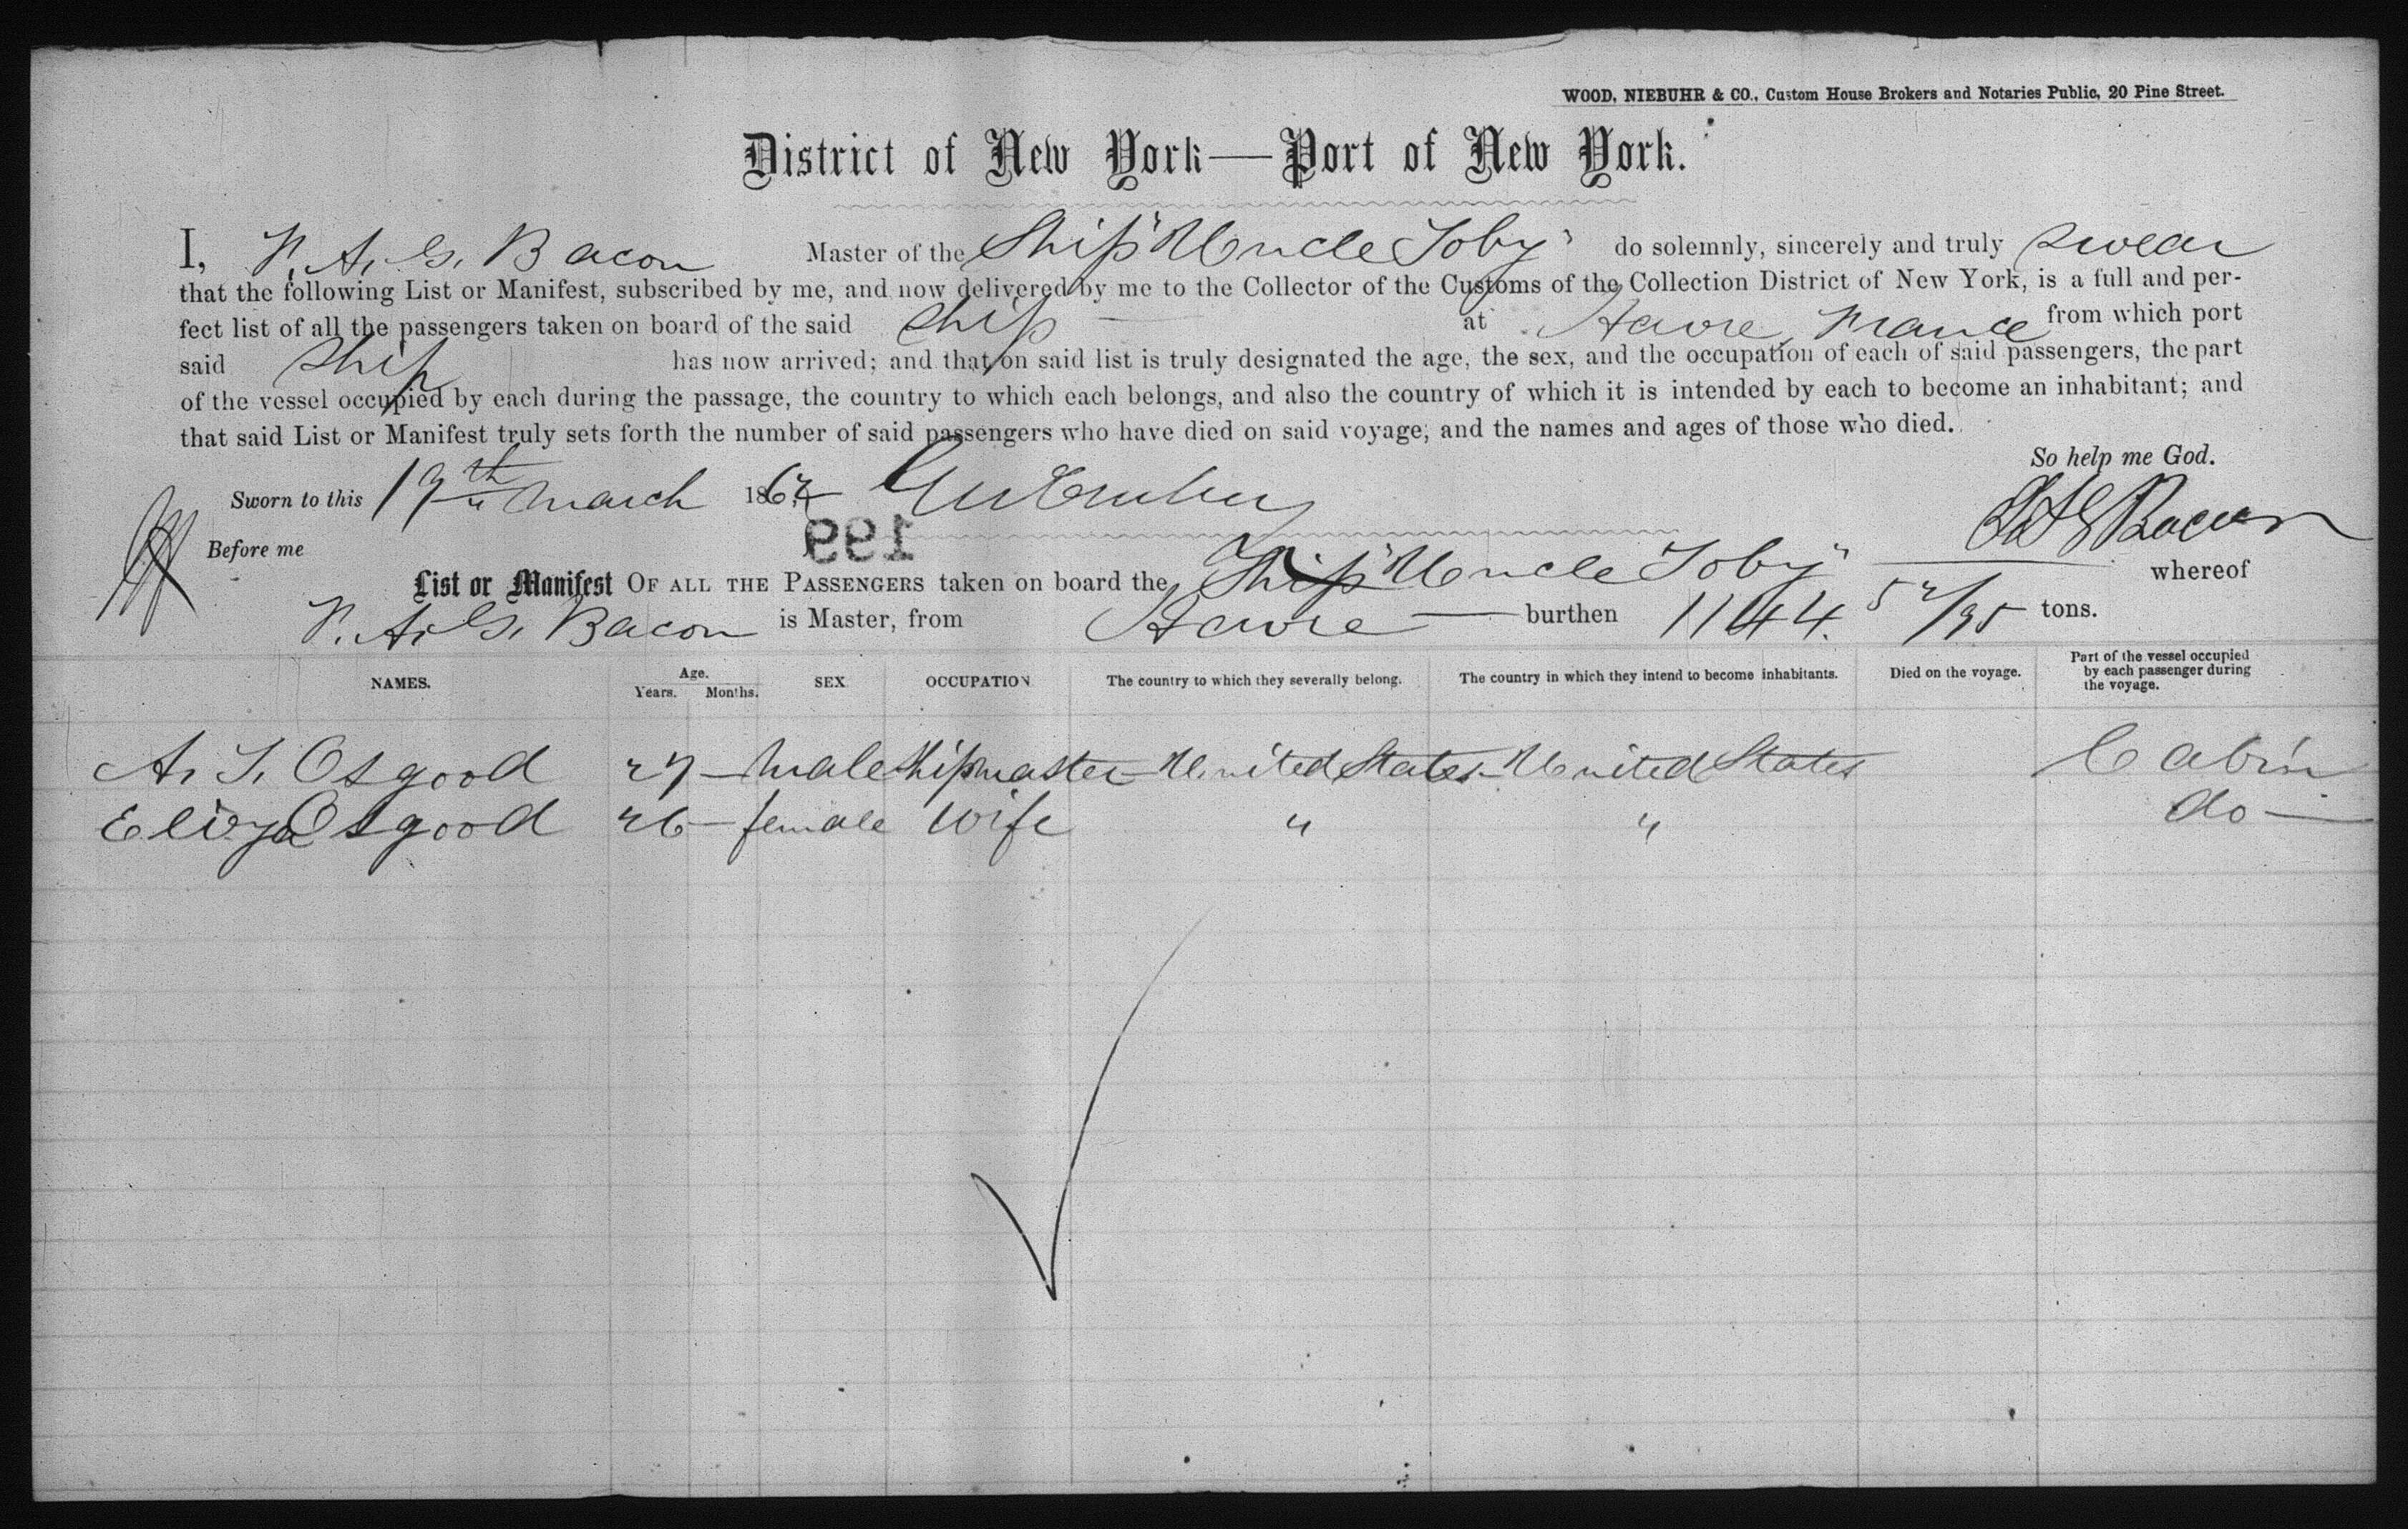 WOOD, NIEBUHR & CO., Custom House Brokers and Notaries Public, 20 Pine Street.
District of New York—Port of New York.
I, A. G. Bacon Master of the Ship "Uncle Toby" do solemnly, sincerely and truly swear
that the following List or Manifest, subscribed by me, and now delivered by me to the Collector of the Customs of the Collection District of New York, is a full and per-
fect list of all the passengers taken on board of the said ship at Havre, France from which port
said ship has now arrived; and that on said list is truly designated the age, the sex, and the occupation of each of said passengers, the part
of the vessel occupied by each during the passage, the country to which each belongs, and also the country of which it is intended by each to become an inhabitant; and
that said List or Manifest truly sets forth the number of said passengers who have died on said voyage; and the names and ages of those who died.
So help me God.
Sworn to this 19th March 186
199
Bacon
Before me
List or Manifest OF ALL THE PASSENGERS taken on board the Ship "Uncle Toby" whereof
A. G. Bacon is Master, from Havre — burthen 1144. 52/95 tons.
NAMES. Age. Years. Months. SEX OCCUPATION The country to which they severally belong. The country in which they intend to become inhabitants. Died on the voyage. Part of the vessel occupied by each passenger during the voyage.
A. T. Osgood 27 — male Shipmaster United States United States Cabin
Eliza Osgood 26 — female Wife " " do —